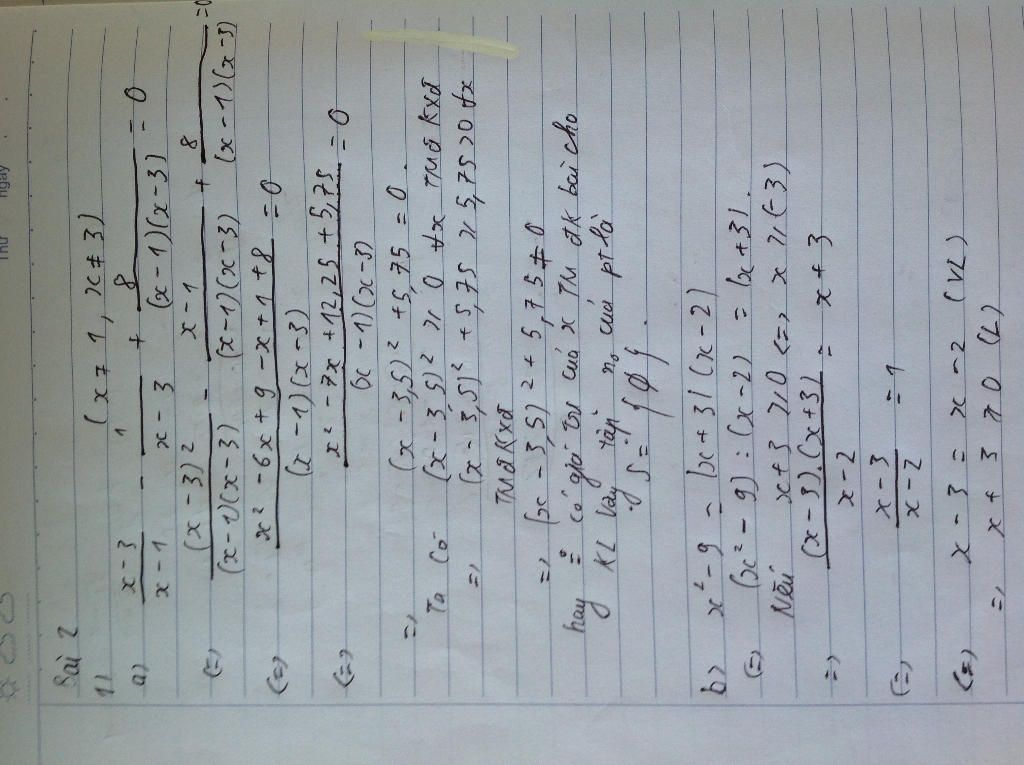 Thứ ngày
Bài 2
1) (x ≠ 1, x ≠ 3)
a) (x - 3)/(x - 1) - 1/(x - 3) + 8/((x - 1)(x - 3)) = 0
(=) (x - 3)²/((x - 1)(x - 3)) - (x - 1)/((x - 1)(x - 3)) + 8/((x - 1)(x - 3)) = 0
(=) (x² - 6x + 9 - x + 1 + 8)/((x - 1)(x - 3)) = 0
(=) (x² - 7x + 12,25 + 5,75)/((x - 1)(x - 3)) = 0
=> (x - 3,5)² + 5,75 = 0.
Ta có (x - 3,5)² ≥ 0 ∀x TMđKXđ
=> (x - 3,5)² + 5,75 ≥ 5,75 > 0 ∀x
TMđKXđ
=> (x - 3,5)² + 5,75 ≠ 0
hay có giá trị của x TM đK bài cho
KL Vậy tập n₀ của pt là
S = {Ø}.
b) x² - 9 = |x + 3| (x - 2)
(=) (x² - 9) : (x - 2) = |x + 3|.
Nếu x + 3 ≥ 0 <=> x ≥ (-3)
=> ((x - 3).(x + 3))/(x - 2) = x + 3
(=) (x - 3)/(x - 2) = 1
(=) x - 3 = x - 2 (VL)
=> x + 3 ≥ 0 (L)